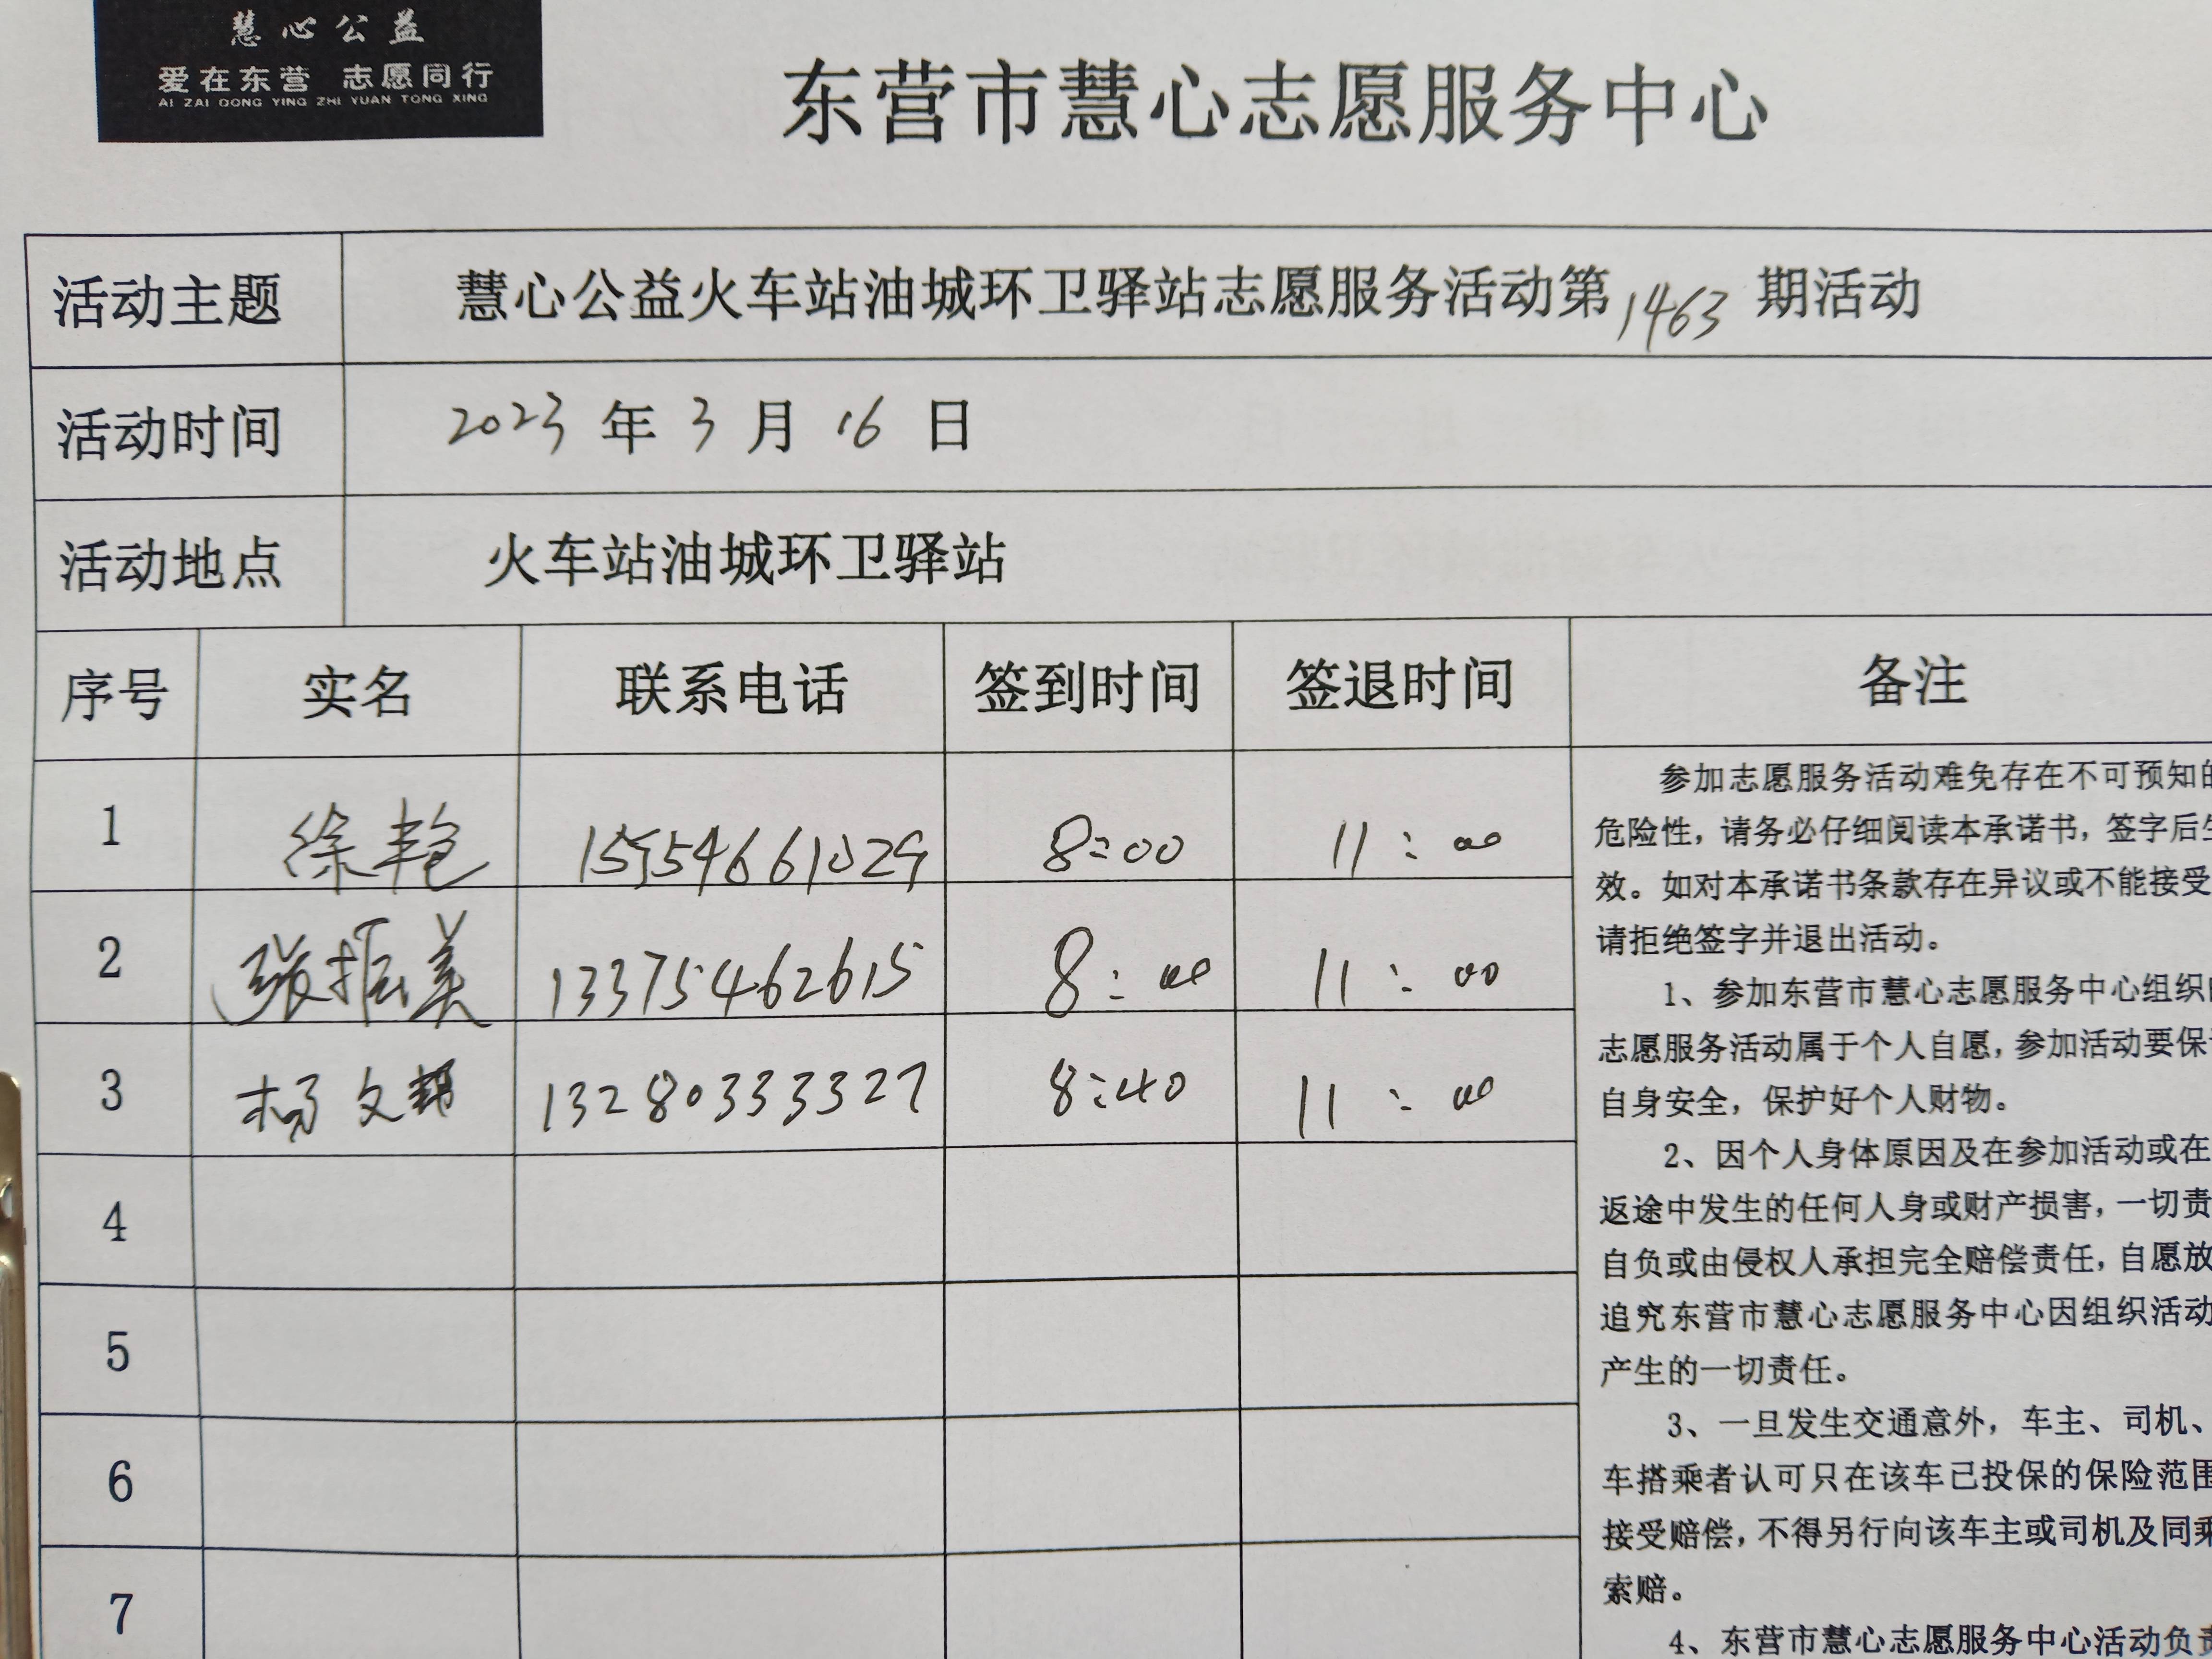 慧心公益
爱在东营 志愿同行
AI ZAI DONG YING ZHI YUAN TONG XING
东营市慧心志愿服务中心
活动主题 慧心公益火车站油城环卫驿站志愿服务活动第1463期活动
活动时间 2023年3月16日
活动地点 火车站油城环卫驿站
序号 实名 联系电话 签到时间 签退时间 备注
1 徐艳 15954661029 8:00 11:00
2 张振美 13375462615 8:00 11:00
3 杨文 13280333327 8:40 11:00
4
5
6
7
参加志愿服务活动难免存在不可预知的
危险性，请务必仔细阅读本承诺书，签字后生
效。如对本承诺书条款存在异议或不能接受
请拒绝签字并退出活动。
1、参加东营市慧心志愿服务中心组织
志愿服务活动属于个人自愿，参加活动要保
自身安全，保护好个人财物。
2、因个人身体原因及在参加活动或在
返途中发生的任何人身或财产损害，一切责
自负或由侵权人承担完全赔偿责任，自愿放
追究东营市慧心志愿服务中心因组织活动
产生的一切责任。
3、一旦发生交通意外，车主、司机、
车搭乘者认可只在该车已投保的保险范围
接受赔偿，不得另行向该车主或司机及同乘
索赔。
4、东营市慧心志愿服务中心活动负责